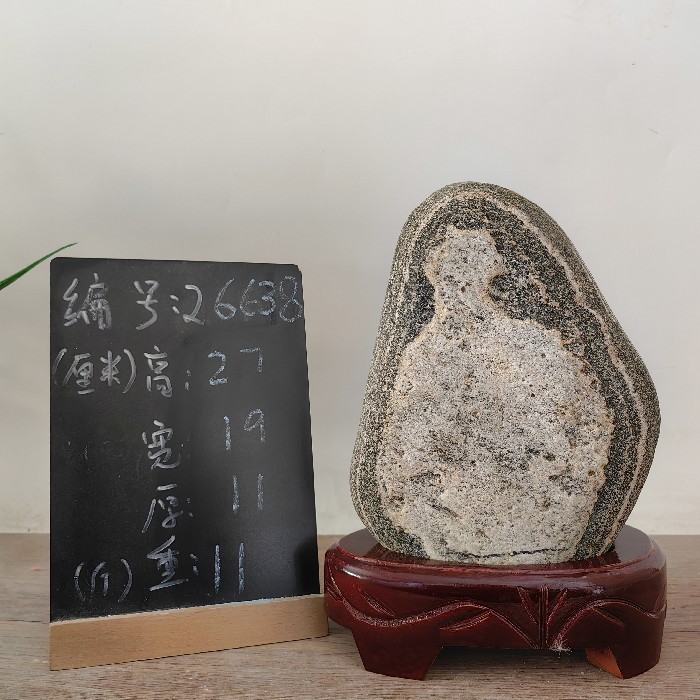 编号:26638
(厘米)高:27
宽: 19
厚: 11
(斤)重:11